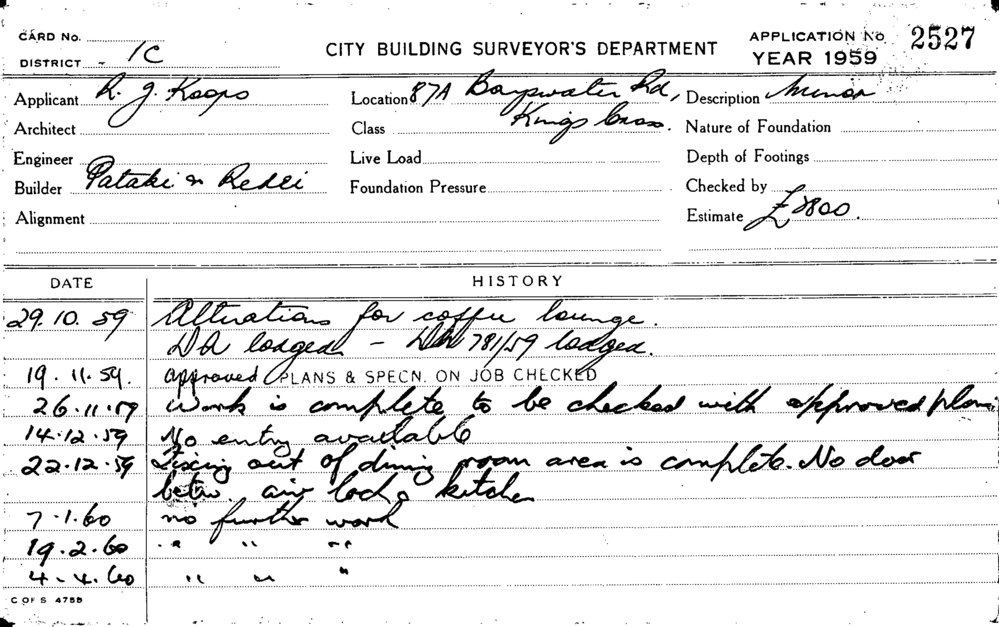 CARD No.
DISTRICT - 1C
CITY BUILDING SURVEYOR'S DEPARTMENT
APPLICATION No 2527
YEAR 1959
Applicant R. J. Koops
Location 87A Bayswater Rd, Kings Cross.
Description Minor
Architect
Class
Nature of Foundation
Engineer
Live Load
Depth of Footings
Builder Pataki & Redei
Foundation Pressure
Checked by
Alignment
Estimate £2800.
DATE HISTORY
29.10.59 Alterations for coffee lounge.
DA lodged - DA 781/59 lodged.
19.11.59. approved PLANS & SPECN. ON JOB CHECKED
26.11.59 Work is complete to be checked with approved plans
14.12.59 No entry available
22.12.59 Fixing out of dining room area is complete. No door
betw. air lock & kitchen
7.1.60 no further work
19.2.60 " " "
4.4.60 " " "
C OF S 4755